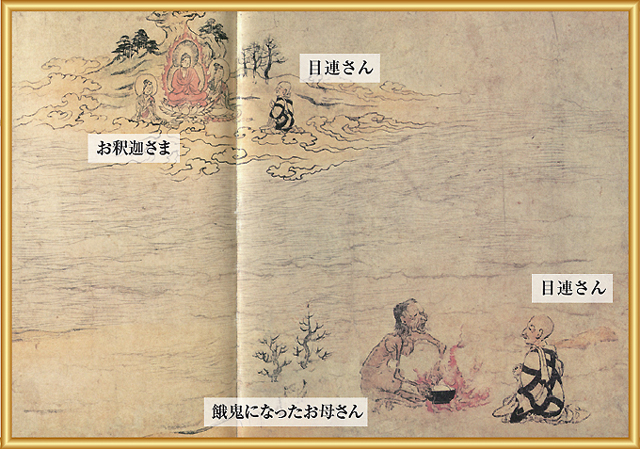 目連さん
お釈迦さま
目連さん
餓鬼になったお母さん